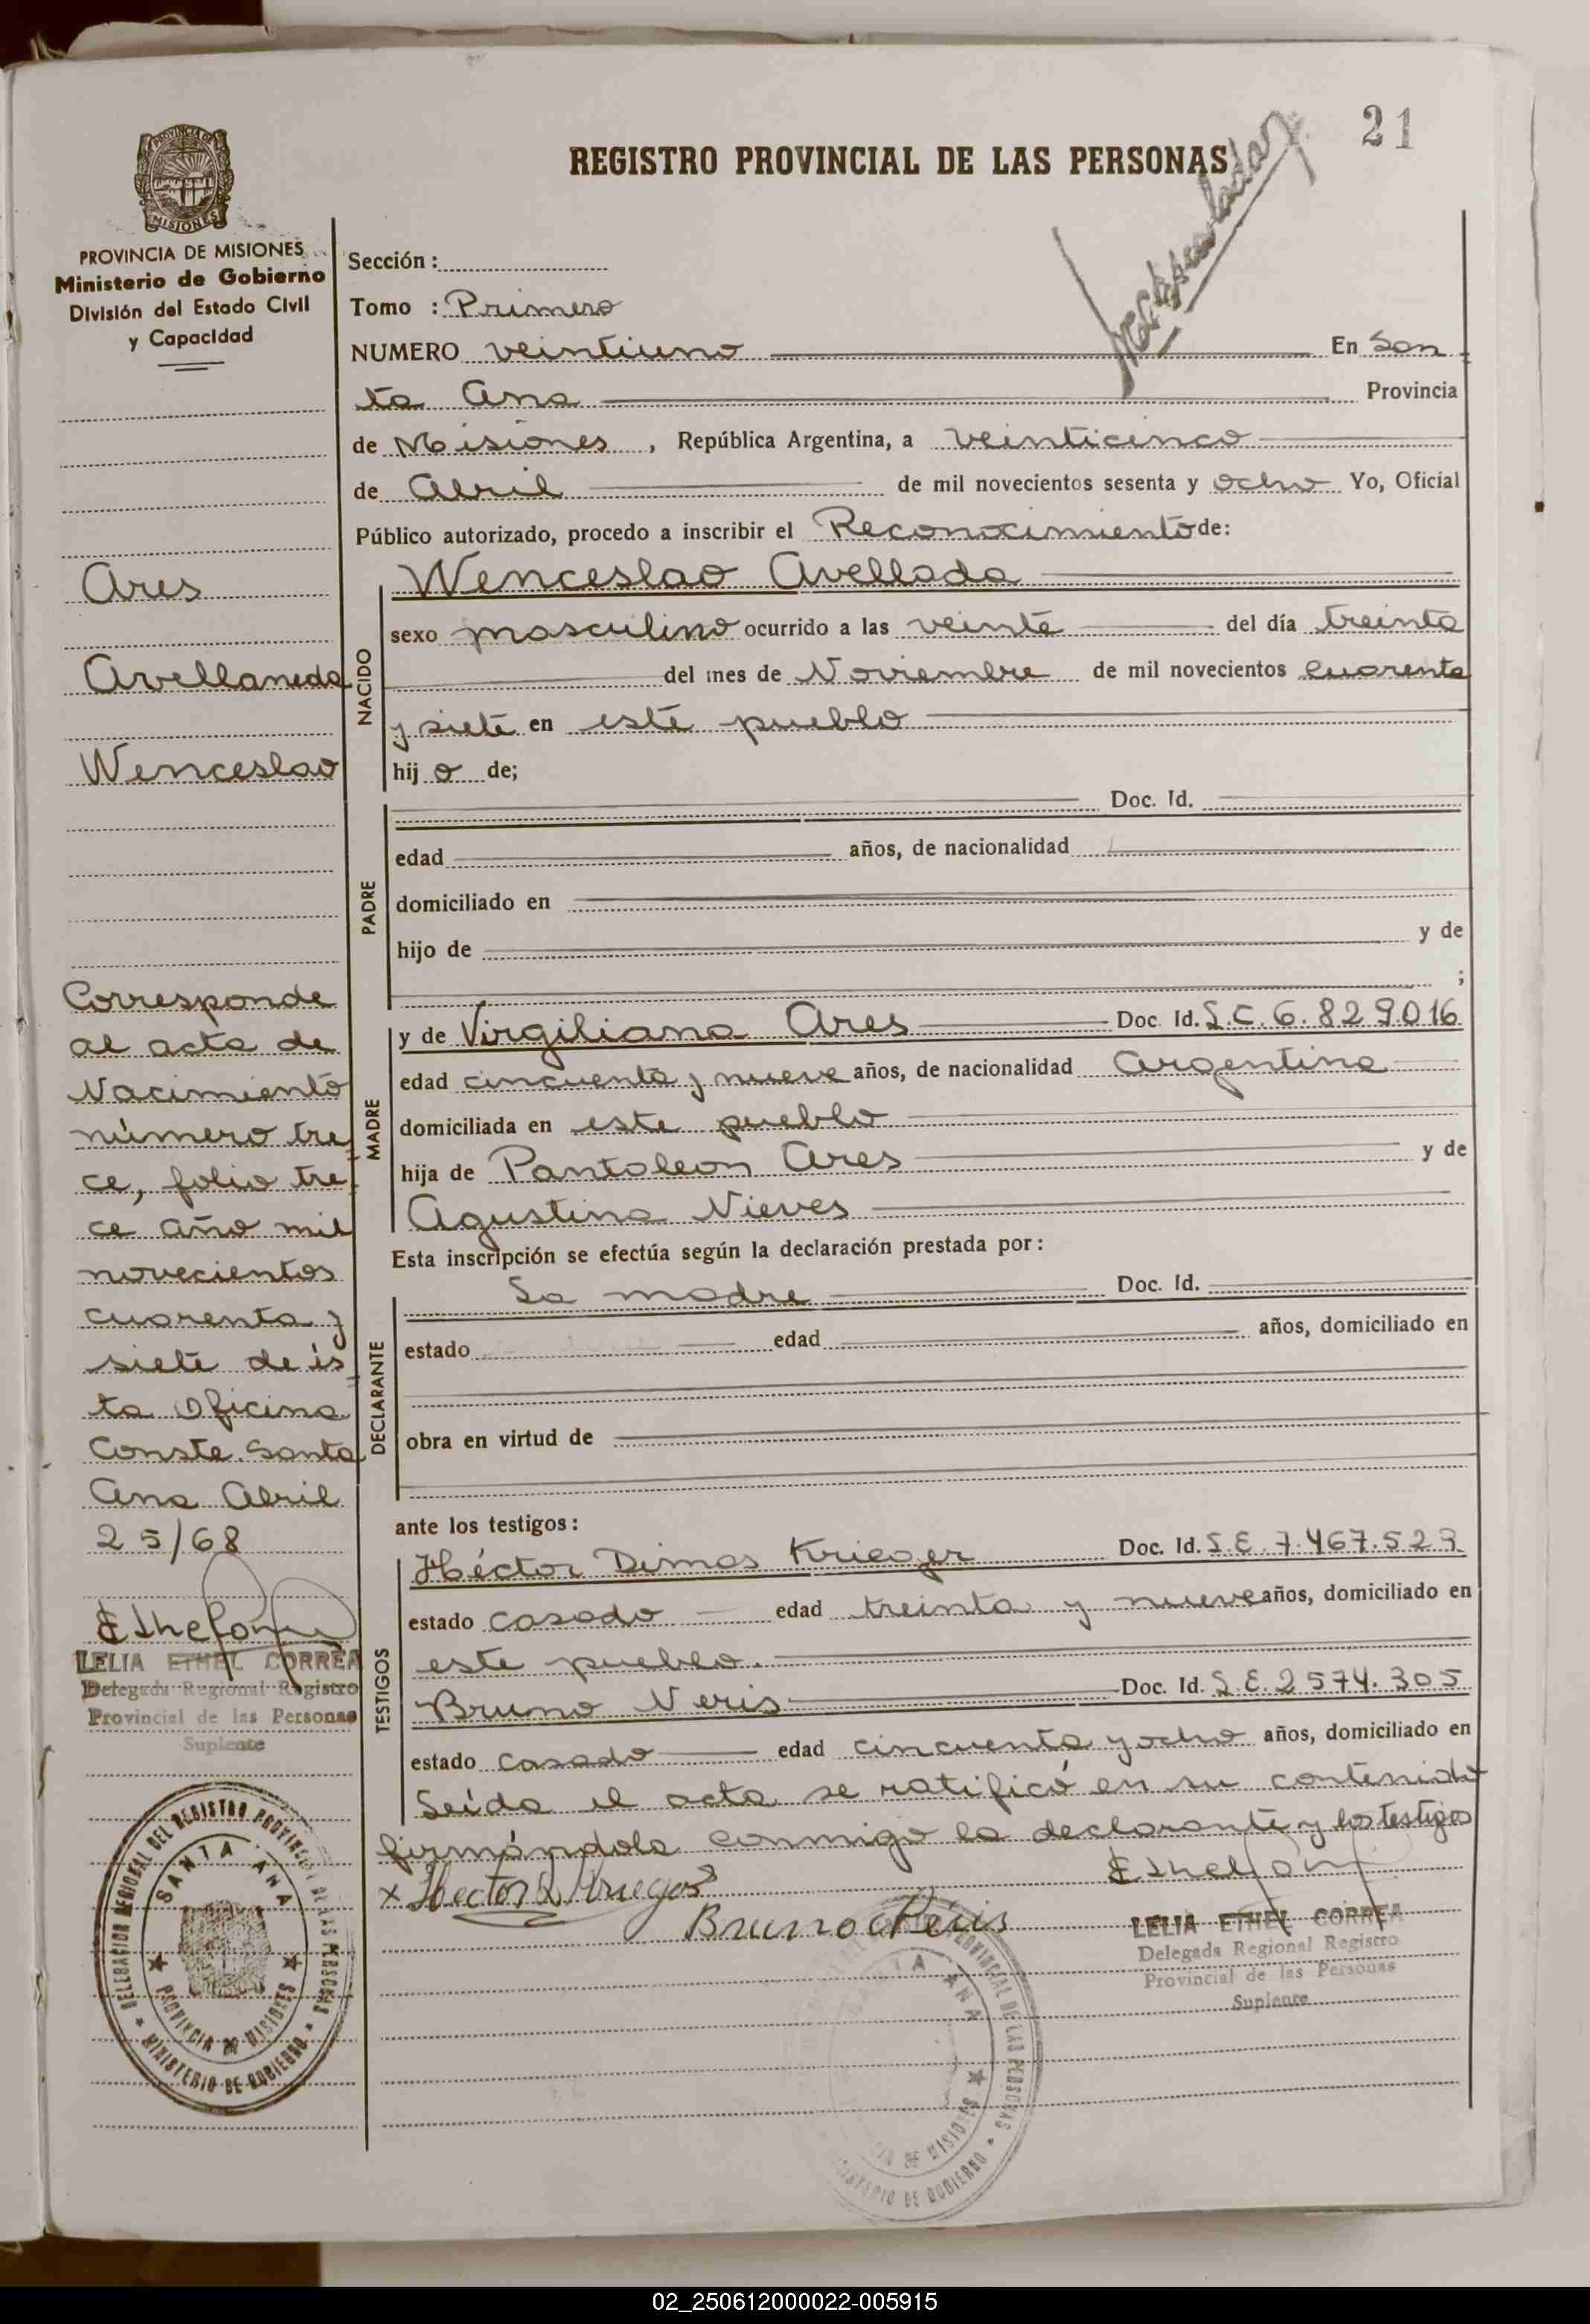 21
REGISTRO PROVINCIAL DE LAS PERSONAS
PROVINCIA DE MISIONES
Ministerio de Gobierno
División del Estado Civil
y Capacidad
Ares
Avellaneda
Wenceslao
Corresponde
al acta de
Nacimiento
número tre
ce, folio tre
ce año mil
novecientos
cuarenta y
siete de és
ta Oficina
Conste. Santa
Ana Abril
25/68
LELIA ETHEL CORREA
Delegada Regional Registro
Provincial de las Personas
Suplente
DELEGACION REGIONAL DEL REGISTRO PROVINCIAL DE LAS PERSONAS
SANTA ANA
PROVINCIA DE MISIONES
MINISTERIO DE GOBIERNO
Sección :
Tomo : Primero
NUMERO veintiuno En San
ta Ana Provincia
de Misiones, República Argentina, a veinticinco
de Abril de mil novecientos sesenta y ocho Yo, Oficial
Público autorizado, procedo a inscribir el Reconocimiento de:
NACIDO
Wenceslao Avellada
sexo masculino ocurrido a las veinte del día treinta
del mes de Noviembre de mil novecientos cuarenta
y siete en este pueblo
hij o de;
PADRE
Doc. Id.
edad años, de nacionalidad
domiciliado en
hijo de y de
;
MADRE
y de Virgiliana Ares Doc. Id. L.C. 6.829.016
edad cincuenta y nueve años, de nacionalidad Argentina
domiciliada en este pueblo
hija de Pantaleon Ares y de
Agustina Nieves
Esta inscripción se efectúa según la declaración prestada por:
DECLARANTE
La madre Doc. Id.
estado edad años, domiciliado en
obra en virtud de
ante los testigos:
TESTIGOS
Héctor Dimas Krieger Doc. Id. L.E. 7.467.529
estado casado edad treinta y nueve años, domiciliado en
este pueblo.
Bruno Neris Doc. Id. L.E. 2574.305
estado casado edad cincuenta y ocho años, domiciliado en
Leída el acta se ratificó en su contenido
firmándola conmigo la declarante y los testigos
x Hector D. Krieger
Bruno Neris
LELIA ETHEL CORREA
Delegada Regional Registro
Provincial de las Personas
Suplente
02_250612000022-005915